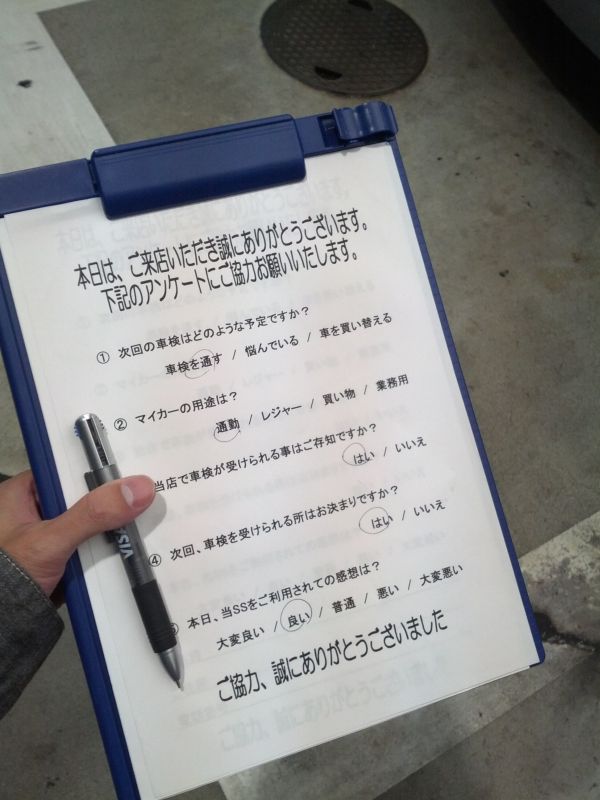 本日は、ご来店いただき誠にありがとうございます。
下記のアンケートにご協力お願いいたします。
① 次回の車検はどのような予定ですか？
車検を通す / 悩んでいる / 車を買い替える
② マイカーの用途は？
通勤 / レジャー / 買い物 / 業務用
当店で車検が受けられる事はご存知ですか？
はい / いいえ
④ 次回、車検を受けられる所はお決まりですか？
はい / いいえ
本日、当SSをご利用されての感想は？
大変良い / 良い / 普通 / 悪い / 大変悪い
ご協力、誠にありがとうございました
VISA